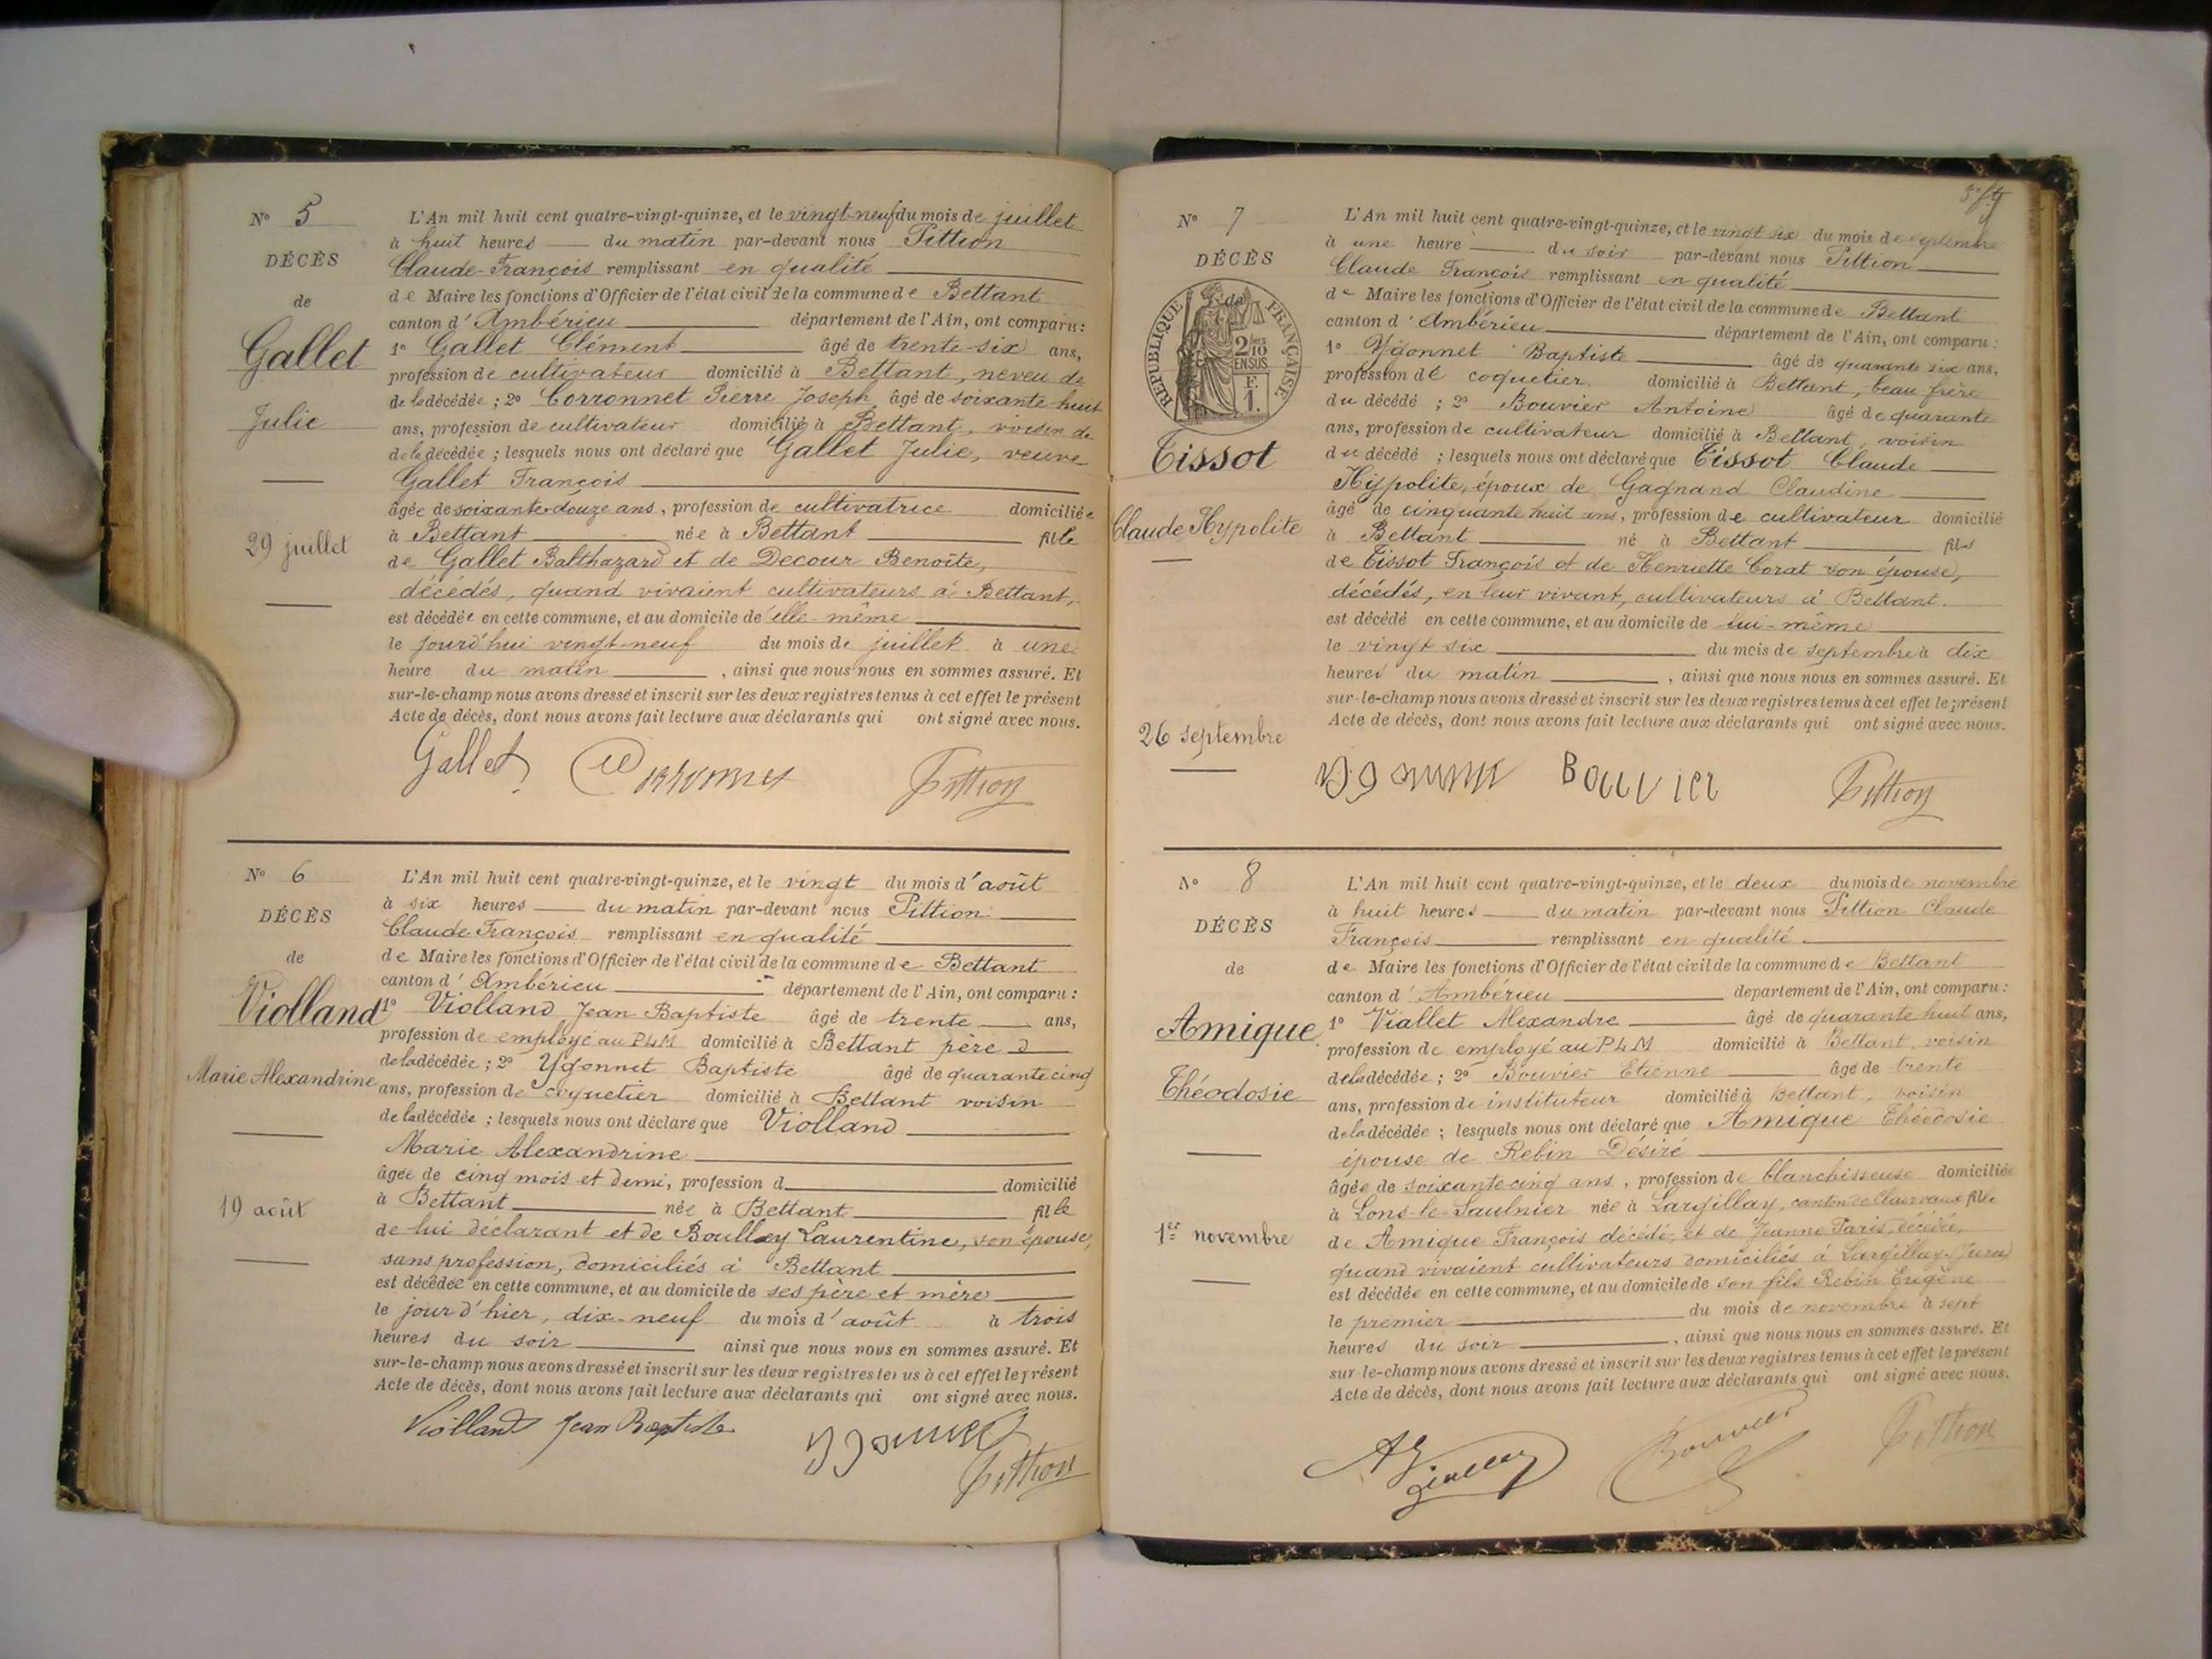 N° 5
DÉCÈS
de
Gallet
Julie
29 juillet
L'An mil huit cent quatre-vingt-quinze, et le vingt-neuf du mois de juillet
à huit heures du matin par-devant nous Pittion
Claude-François remplissant en qualité
de Maire les fonctions d'Officier de l'état civil de la commune de Bettant
canton d'Ambérieu département de l'Ain, ont comparu :
1° Gallet Clément âgé de trente-six ans,
profession de cultivateur domicilié à Bettant, neveu de
de la décédée ; 2° Corronnet Pierre Joseph âgé de soixante-huit
ans, profession de cultivateur domicilié à Bettant, voisin de
de la décédée ; lesquels nous ont déclaré que Gallet Julie, veuve
Gallet François
âgée de soixante-douze ans, profession de cultivatrice domiciliée
à Bettant née à Bettant fille
de Gallet Balthazard et de Decour Benoîte,
décédés, quand vivaient cultivateurs à Bettant,
est décédée en cette commune, et au domicile de elle-même
le jourd'hui vingt-neuf du mois de juillet à une
heure du matin, ainsi que nous nous en sommes assuré. Et
sur-le-champ nous avons dressé et inscrit sur les deux registres tenus à cet effet le présent
Acte de décès, dont nous avons fait lecture aux déclarants qui ont signé avec nous.
Gallet Corronnet Pittion
N° 6
DÉCÈS
de
Violland
Marie Alexandrine
19 août
L'An mil huit cent quatre-vingt-quinze, et le vingt du mois d'août
à six heures du matin par-devant nous Pittion
Claude François remplissant en qualité
de Maire les fonctions d'Officier de l'état civil de la commune de Bettant
canton d'Ambérieu département de l'Ain, ont comparu :
1° Violland Jean Baptiste âgé de trente ans,
profession de employé au PLM domicilié à Bettant père d
de la décédée ; 2° Ygonnet Baptiste âgé de quarante cinq
ans, profession de coquetier domicilié à Bettant voisin
de la décédée ; lesquels nous ont déclaré que Violland
Marie Alexandrine
âgée de cinq mois et demi, profession d domicilié
à Bettant née à Bettant fille
de lui déclarant et de Boulley Laurentine, son épouse,
sans profession, domiciliés à Bettant
est décédée en cette commune, et au domicile de ses père et mère
le jour d'hier, dix-neuf du mois d'août à trois
heures du soir ainsi que nous nous en sommes assuré. Et
sur-le-champ nous avons dressé et inscrit sur les deux registres tenus à cet effet le présent
Acte de décès, dont nous avons fait lecture aux déclarants qui ont signé avec nous.
Violland Jean Baptiste Ygonnet
Pittion
N° 7
DÉCÈS
de
RÉPUBLIQUE FRANÇAISE
2/10 EN SUS
F. 1.
Tissot
Claude Hypolite
26 septembre
L'An mil huit cent quatre-vingt-quinze, et le vingt six du mois de septembre
à une heure du soir par-devant nous Pittion
Claude François remplissant en qualité
de Maire les fonctions d'Officier de l'état civil de la commune de Bettant
canton d'Ambérieu département de l'Ain, ont comparu :
1° Ygonnet Baptiste âgé de quarante six ans,
profession de coquetier domicilié à Bettant, beau frère
du décédé ; 2° Bouvier Antoine âgé de quarante
ans, profession de cultivateur domicilié à Bettant, voisin
du décédé ; lesquels nous ont déclaré que Tissot Claude
Hypolite, époux de Gagnand Claudine
âgé de cinquante huit ans, profession de cultivateur domicilié
à Bettant né à Bettant fils
de Tissot François et de Henriette Corat son épouse,
décédés, en leur vivant, cultivateurs à Bettant.
est décédé en cette commune, et au domicile de lui-même
le vingt six du mois de septembre à dix
heures du matin, ainsi que nous nous en sommes assuré. Et
sur-le-champ nous avons dressé et inscrit sur les deux registres tenus à cet effet le présent
Acte de décès, dont nous avons fait lecture aux déclarants qui ont signé avec nous.
Ygonnet Bouvier Pittion
N° 8
DÉCÈS
de
Amique
Théodosie
1er novembre
L'An mil huit cent quatre-vingt-quinze, et le deux du mois de novembre
à huit heures du matin par-devant nous Pittion Claude
François remplissant en qualité
de Maire les fonctions d'Officier de l'état civil de la commune de Bettant
canton d'Ambérieu département de l'Ain, ont comparu :
1° Viallet Alexandre âgé de quarante huit ans,
profession de employé au PLM domicilié à Bettant, voisin
de la décédée ; 2° Bouvier Etienne âgé de trente
ans, profession de instituteur domicilié à Bettant, voisin
de la décédée ; lesquels nous ont déclaré que Amique Théodosie
épouse de Rebin Désiré
âgée de soixante cinq ans, profession de blanchisseuse domiciliée
à Lons-le-Saulnier née à Largillay, canton de Clairvaux fille
de Amique François décédé, et de Jeanne Paris, décédée,
quand vivaient cultivateurs domiciliés à Largillay (Jura)
est décédée en cette commune, et au domicile de son fils Rebin Eugène
le premier du mois de novembre à sept
heures du soir, ainsi que nous nous en sommes assuré. Et
sur-le-champ nous avons dressé et inscrit sur les deux registres tenus à cet effet le présent
Acte de décès, dont nous avons fait lecture aux déclarants qui ont signé avec nous.
Bouvier Pittion